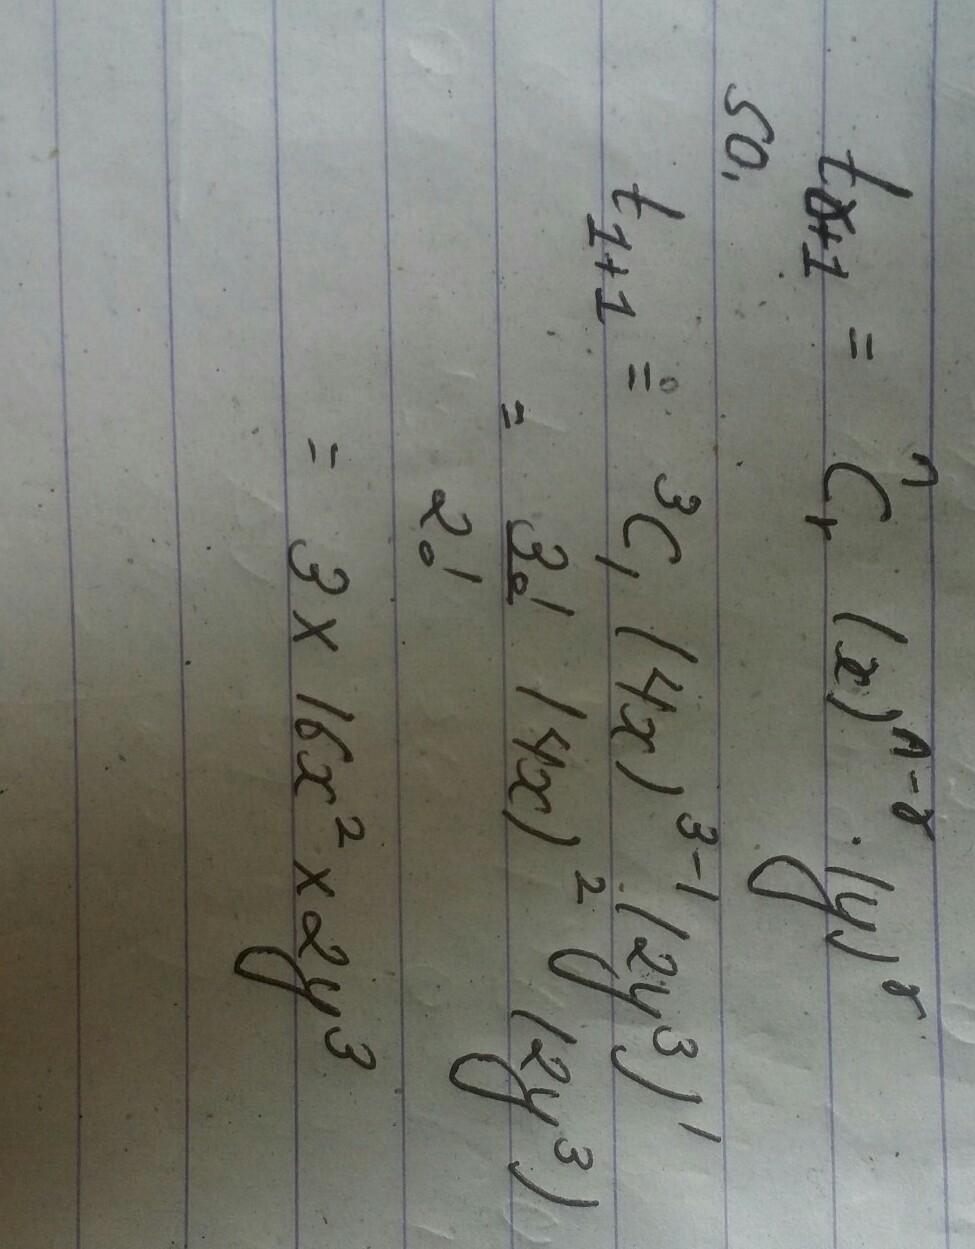 t_{r+1} = ^nC_r (x)^{n-r} . (y)^r
so,
t_{1+1} = ^3C_1 (4x)^{3-1} . (2y^3)^1
= 3!/2! (4x)^2 (2y^3)
= 3 × 16x^2 × 2y^3